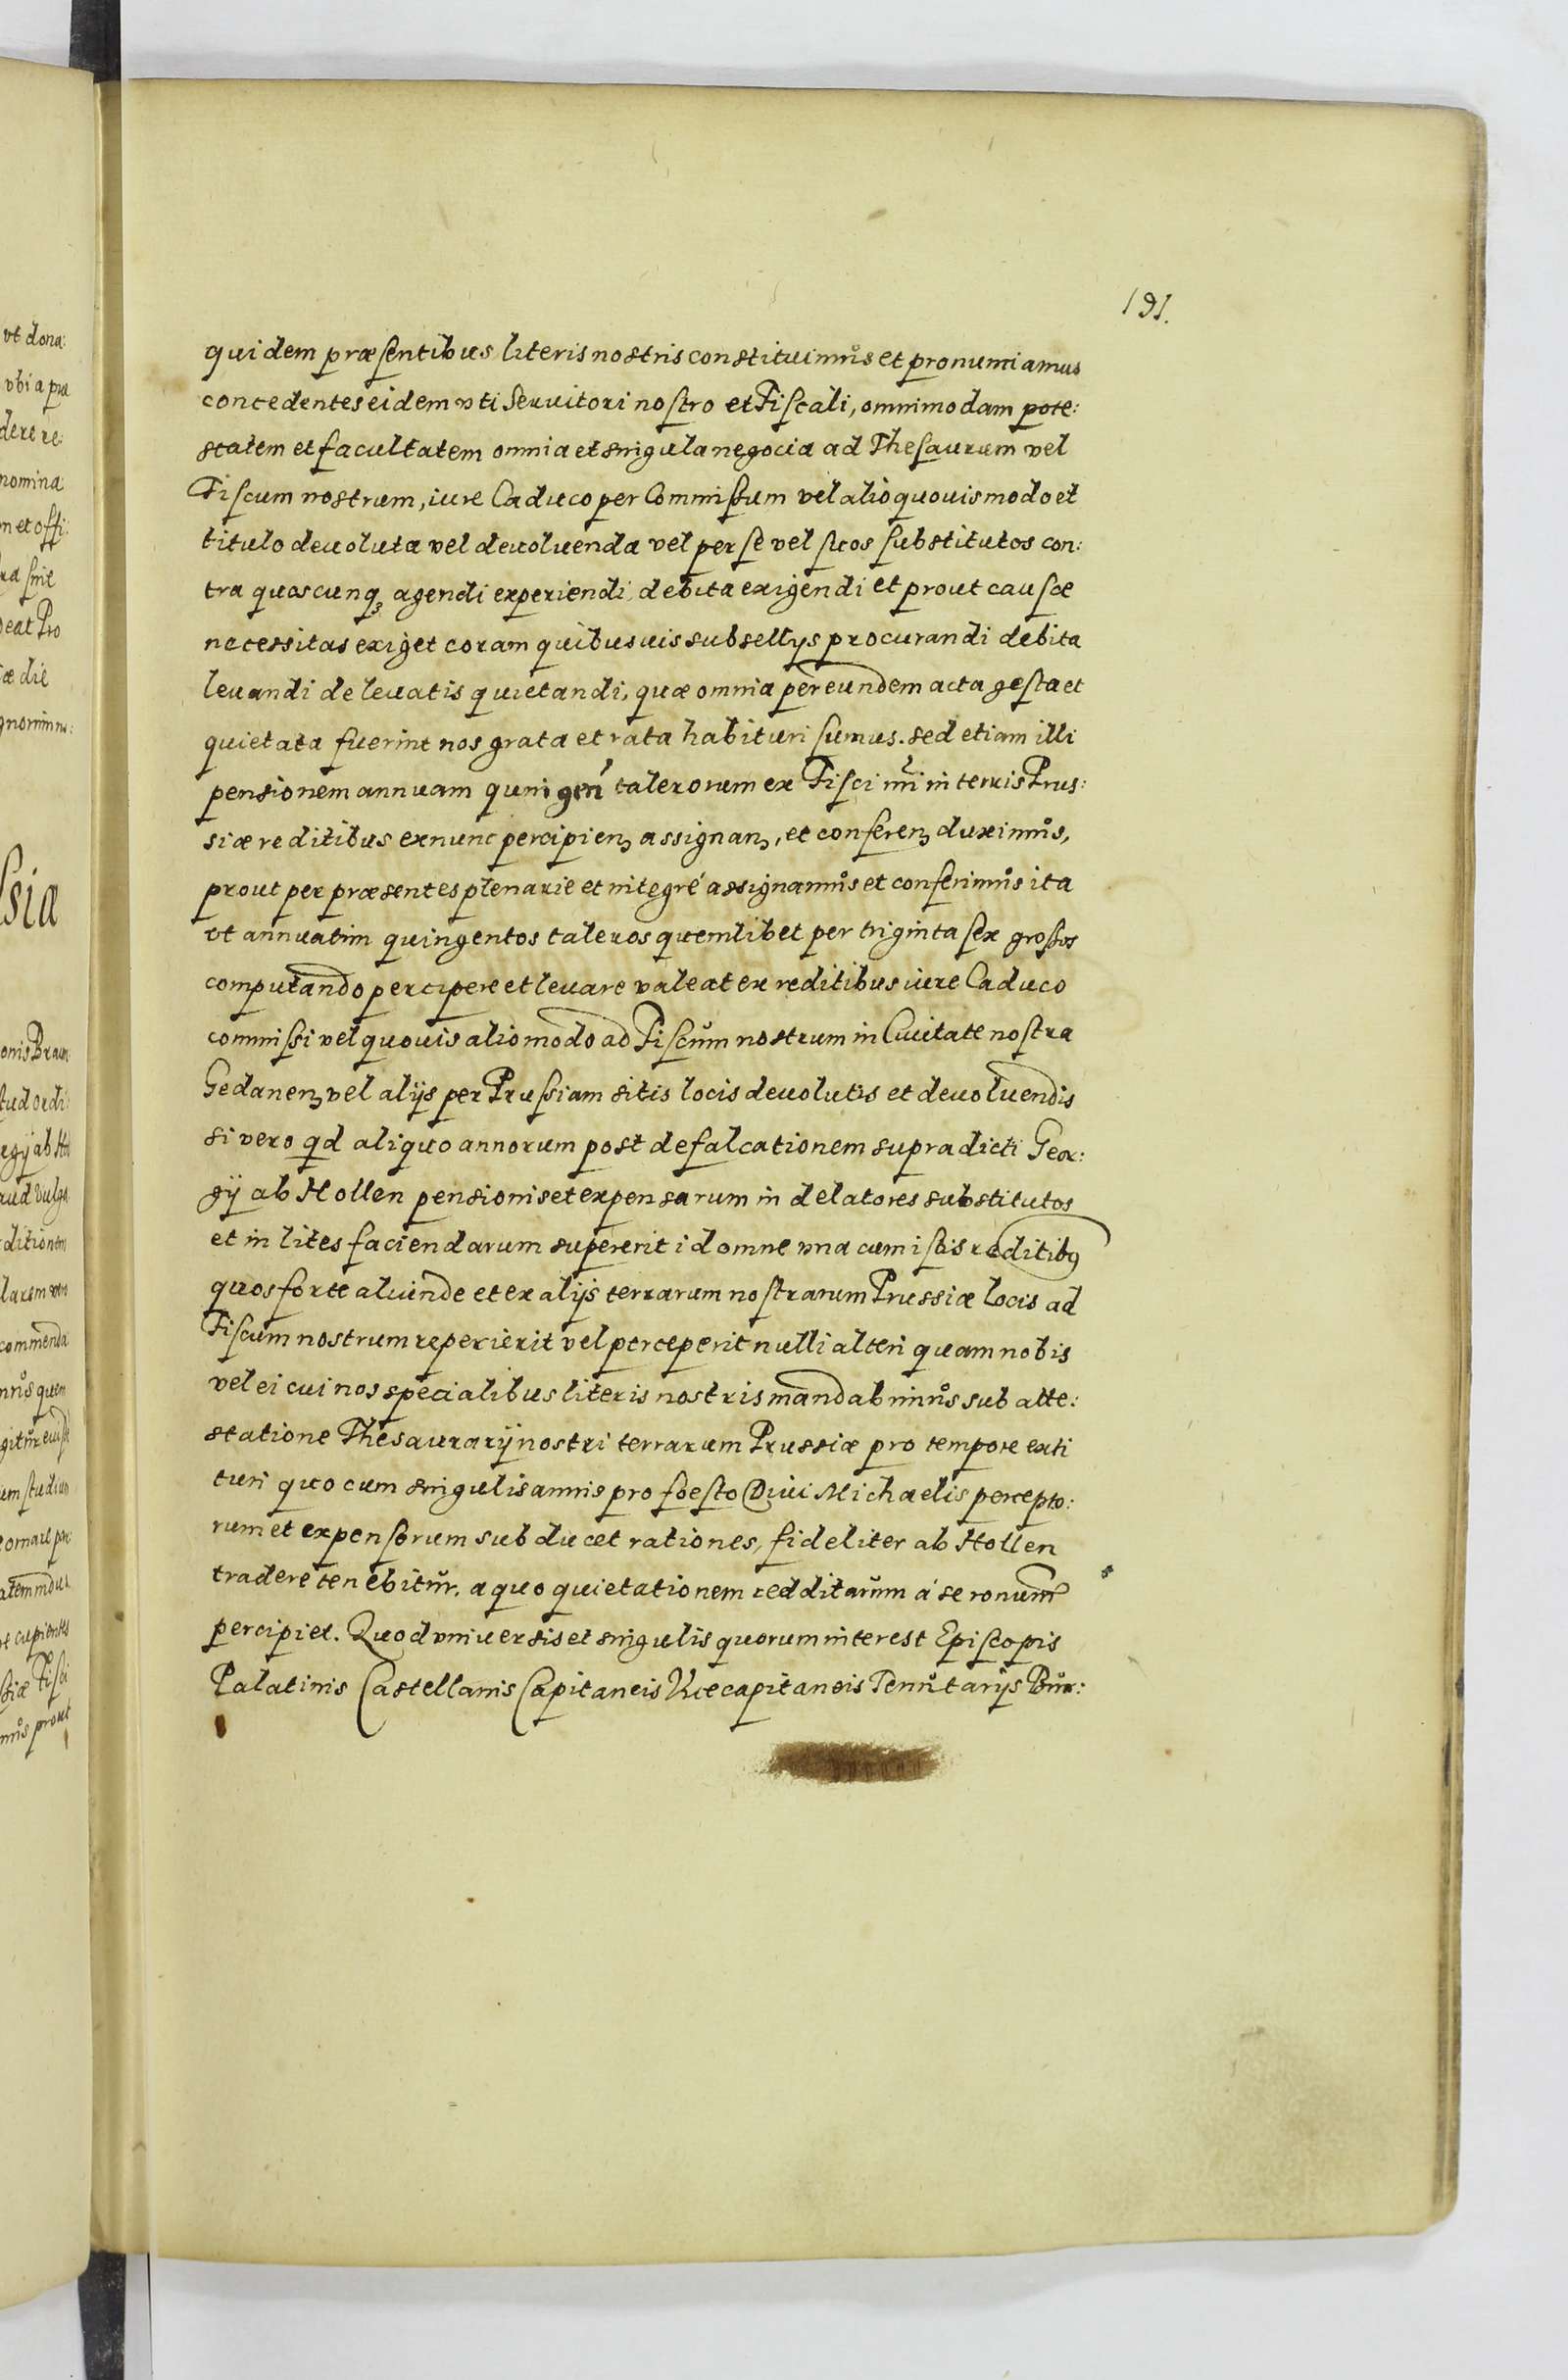 191.
quidem præsentibus literis nostris constituimus et pronunciamus
concedentes eidem vti Seruitori nostro et Fiscali, omnimodam pote:
statem et facultatem omnia et singula negocia ad Thesaurum vel
Fiscum nostrum, iure Caduco per Commissum vel alio quouis modo et
titulo deuoluta vel deuoluenda vel per se vel suos substitutos con:
tra quoscunq₃ agendi experiendi, debita exigendi et prout causæ
necessitas exiget coram quibusuis subsellijs procurandi debita
leuandi de leuatis quietandi, quæ omnia per eundem acta gesta et
quietata fuerint nos grata et rata habituri sumus. sed etiam illi
pensionem annuam quingen̄ talerorum ex Fisci nr̄i in terris Prus:
siæ reditibus exnunc percipienȝ assignanȝ, et conferenȝ duximus,
prout per præsentes plenarie et integré assignamus et conferimus ita
vt annuatim quingentos taleros quemlibet per triginta sex grossos
computando percipere et leuare valeat ex reditibus iure Caduco
commissi vel quouis alio modo ad Fiscum nostrum in Ciuitate nostra
Gedanenȝ vel alijs per Prussiam sitis locis deuolutis et deuoluendis
si vero qd aliquo annorum post defalcationem supradicti Geor:
gij ab Hollen pensionis et expensarum in delatores substitutos
et in lites faciendarum supererit id omne vna cum istis reditibꝰ
quos forte aliunde et ex alijs terrarum nostrarum Prussiæ locis ad
Fiscum nostrum repererit vel perceperit nulli alteri quam nobis
vel ei cui nos specialibus literis nostris mandabimus sub atte:
statione Thesaurarij nostri terrarum Prussiæ pro tempore exti
turi quo cum singulis annis pro foesto Diui Michaelis percepto:
rum et expensorum subducet rationes, fideliter ab Hollen
tradere tenebitur. a quo quietationem redditarum á se ronum̄
percipiet. Quod vniuersis et singulis quorum interest Episcopis
Palatinis Castellanis Capitaneis Vicecapitaneis Tenutarijs Bur: